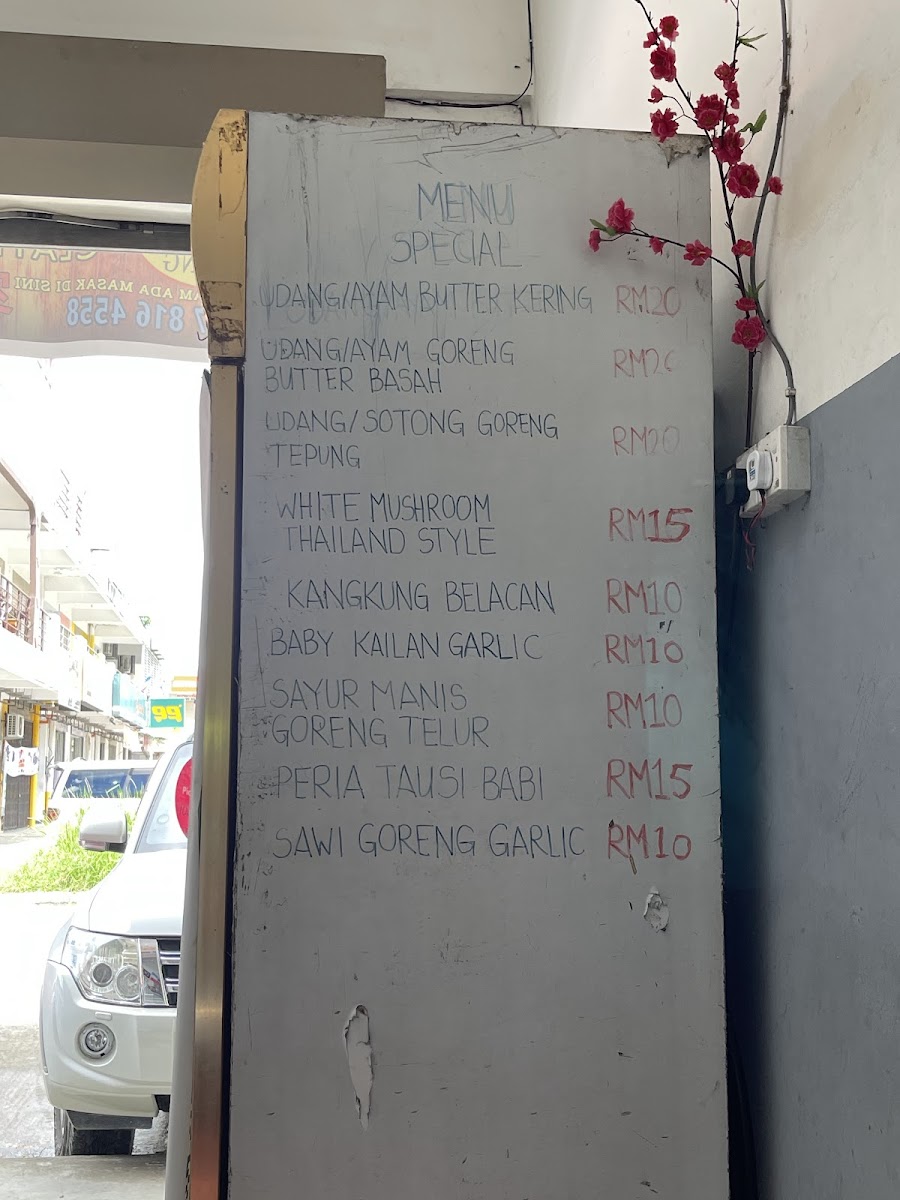 MENU
SPECIAL
UDANG/AYAM BUTTER KERING RM20
UDANG/AYAM GORENG
BUTTER BASAH
UDANG/SOTONG GORENG
TEPUNG RM20
WHITE MUSHROOM
THAILAND STYLE RM15
KANGKUNG BELACAN RM10
BABY KAILAN GARLIC RM10
SAYUR MANIS
GORENG TELUR RM10
PERIA TAUSI BABI RM15
SAWI GORENG GARLIC RM10
AM ADA MASAK DI SINI
816 4558